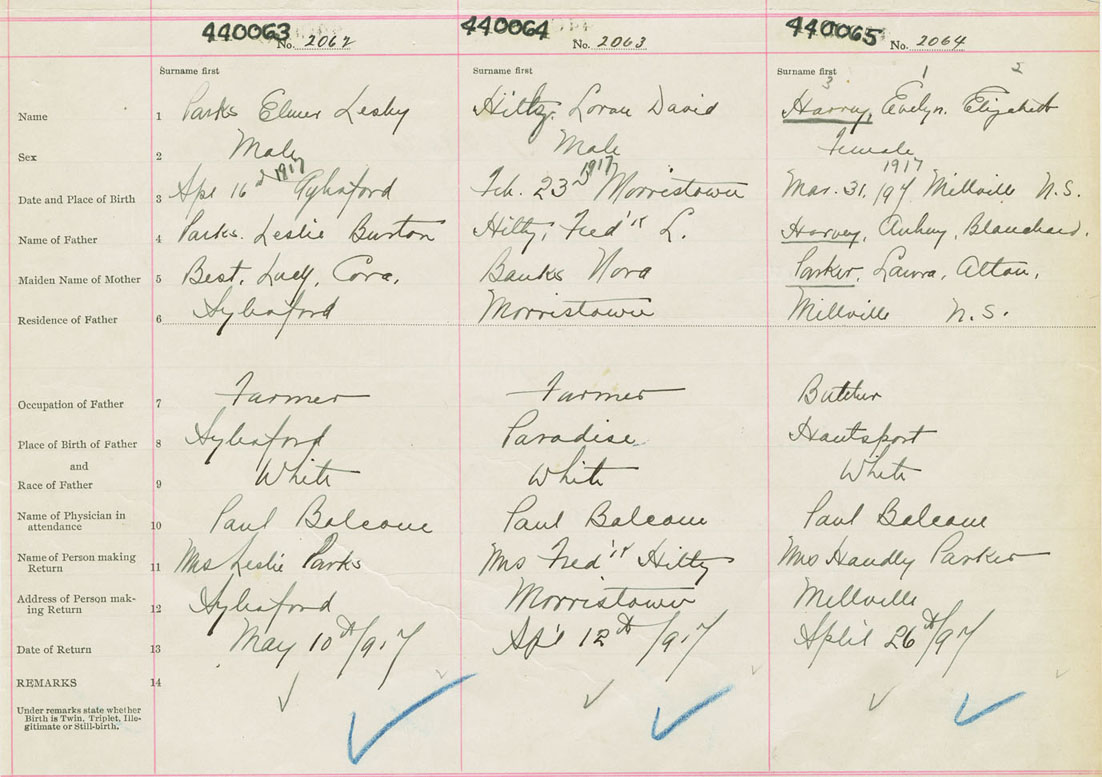 440063 No. 2062 440064 No. 2063 440065 No. 2064
Surname first Surname first Surname first 3 1 2
Name 1 Parks Elmer Lesley Hilty, Loran David Harvey, Evelyn. Elizabeth
Sex 2 Male Male Female
Date and Place of Birth 3 Apr 16 1917 Aylesford Feb. 23rd 1917 Morristown Mar. 31, 1917 Millville N.S.
Name of Father 4 Parks. Leslie Burton Hilty, Fred'k L. Harvey, Blanchard.
Maiden Name of Mother 5 Best, Lucy, Cora, Banks Nora Parker, Laura, Alton,
Residence of Father 6 Aylesford Morristown Millville N.S.
Occupation of Father 7 Farmer Farmer Butcher
Place of Birth of Father 8 Aylesford Paradise Hantsport
and
Race of Father 9 White White White
Name of Physician in
attendance 10 Paul Balcom Paul Balcom Paul Balcom
Name of Person making
Return 11 Mrs Leslie Parks Mrs Fred'k Hilty Mrs Handly Parker
Address of Person mak-
ing Return 12 Aylesford Morristown Millville
Date of Return 13 May 10th/917 Ap'l 12th/917 April 26th/917
REMARKS 14
Under remarks state whether
Birth is Twin, Triplet, Ille-
gitimate or Still-birth.